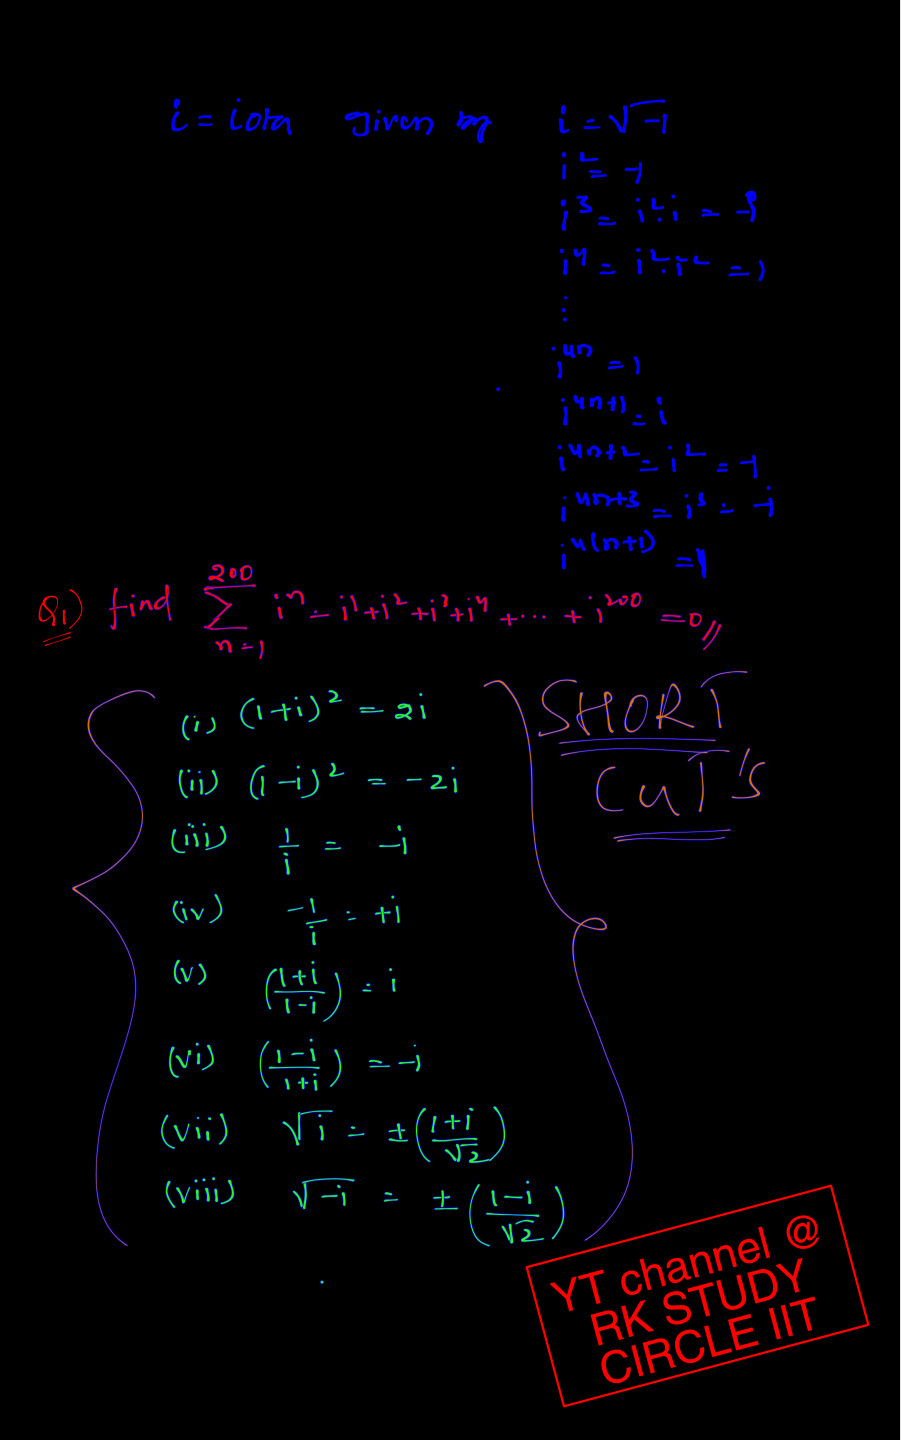 i = iota given by i = √-1
i² = -1
i³ = i².i = -i
i⁴ = i².i² = 1
⋮
i⁴ⁿ = 1
i⁴ⁿ⁺¹ = i
i⁴ⁿ⁺² = i² = -1
i⁴ⁿ⁺³ = i³ = -i
i⁴⁽ⁿ⁺¹⁾ = 1
Q1) find ∑_{n=1}^{200} iⁿ = i¹+i²+i³+i⁴+⋯+i²⁰⁰ = 0//
SHORT
CUT'S
(i) (1+i)² = 2i
(ii) (1-i)² = -2i
(iii) 1/i = -i
(iv) -1/i = +i
(v) ((1+i)/(1-i)) = i
(vi) ((1-i)/(1+i)) = -i
(vii) √i = ±((1+i)/√2)
(viii) √-i = ±((1-i)/√2)
YT channel @
RK STUDY
CIRCLE IIT